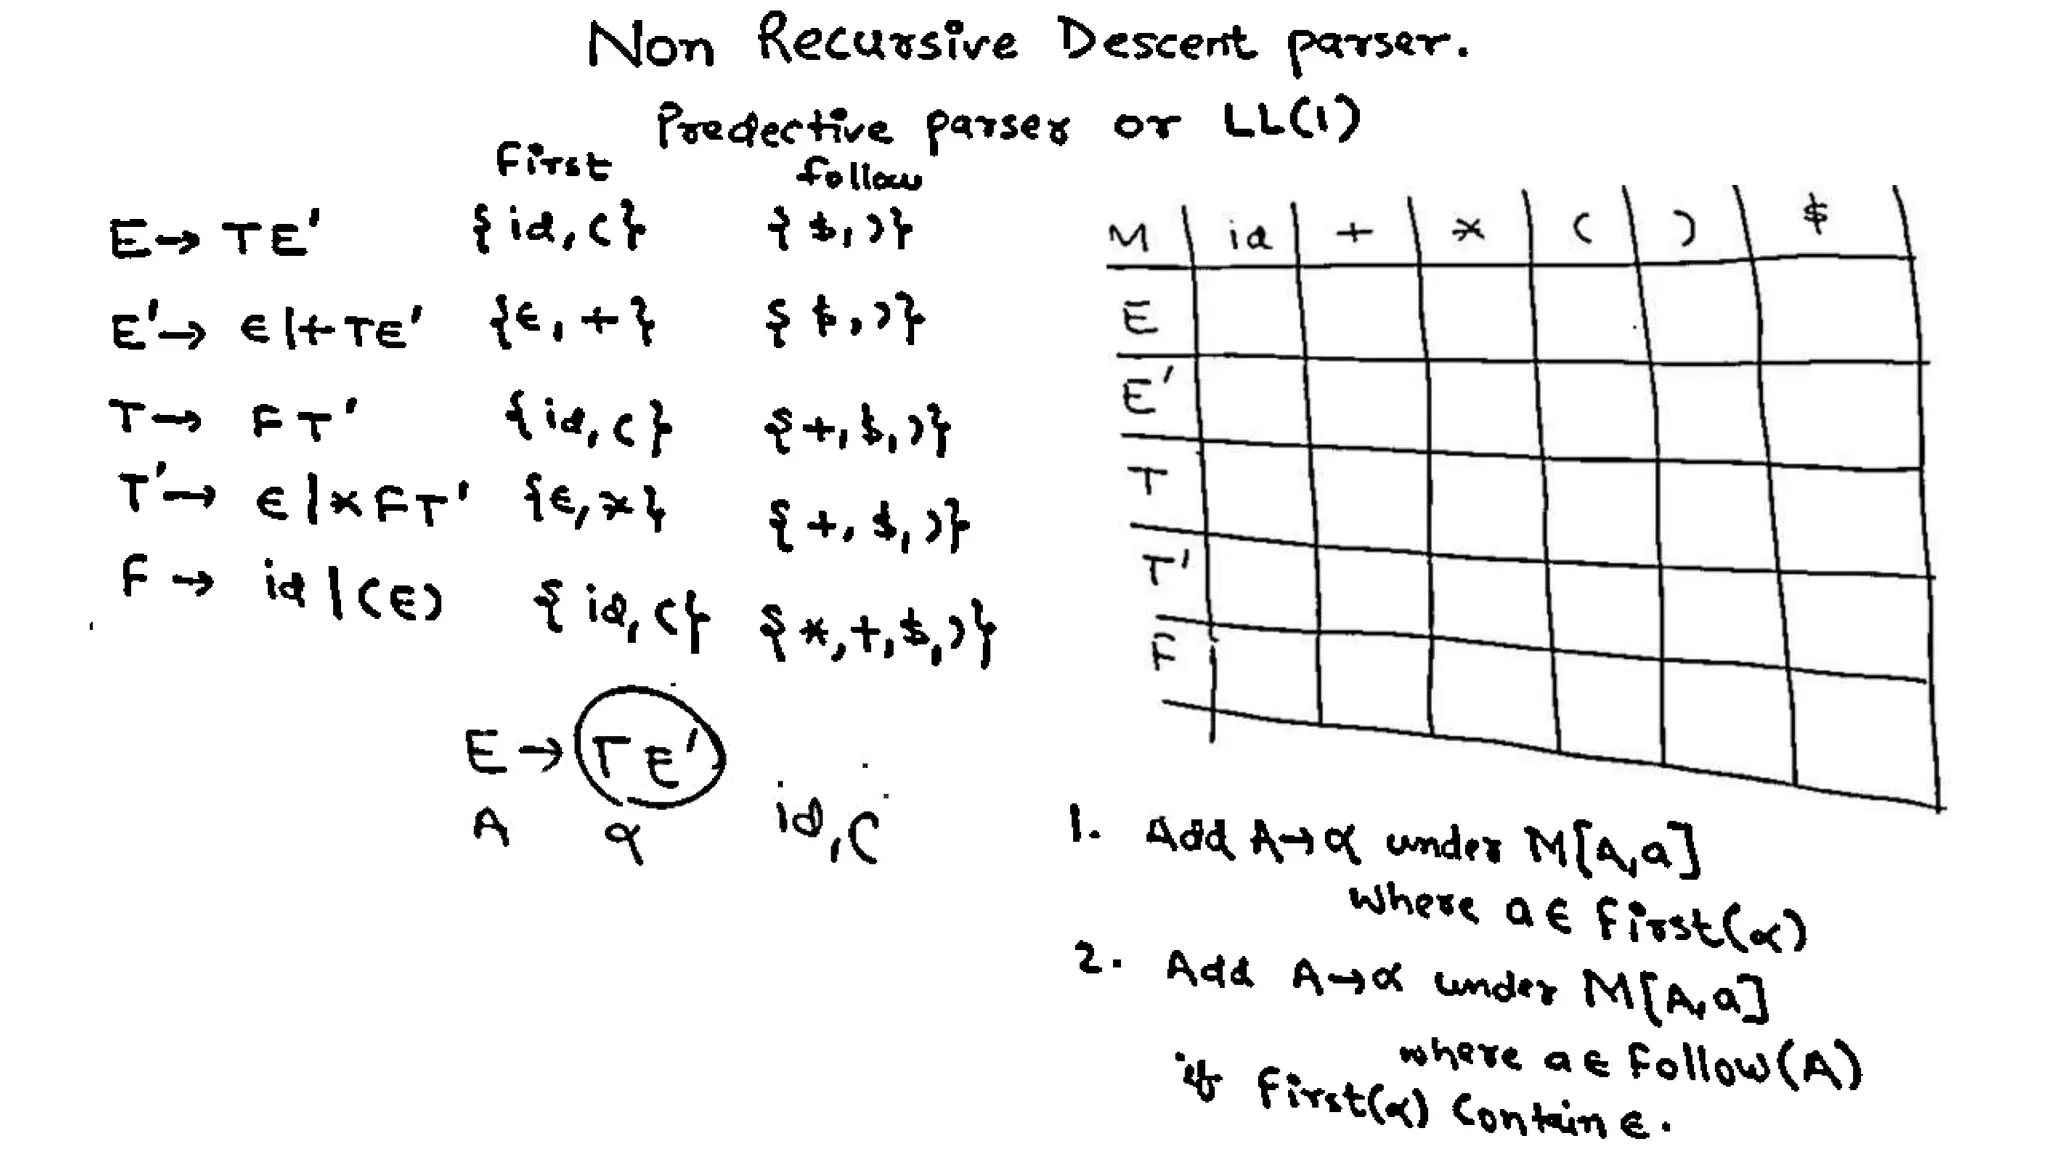 Non Recursive Descent parser.
Predective parser or LL(1)
First follow
E→ TE' {id, (} {$, )}
E'→ ϵ|+TE' {ϵ, +} {$, )}
T→ FT' {id, (} {+, $, )}
T'→ ϵ|*FT' {ϵ, *} {+, $, )}
F → id|(E) {id, (} {*, +, $, )}
E → TE'
A α id, (
M id + * ( ) $
E
E'
T
T'
F
1. Add A→α under M[A,a]
where a ϵ First(α)
2. Add A→α under M[A,a]
where a ϵ Follow(A)
if First(α) Contain ϵ.